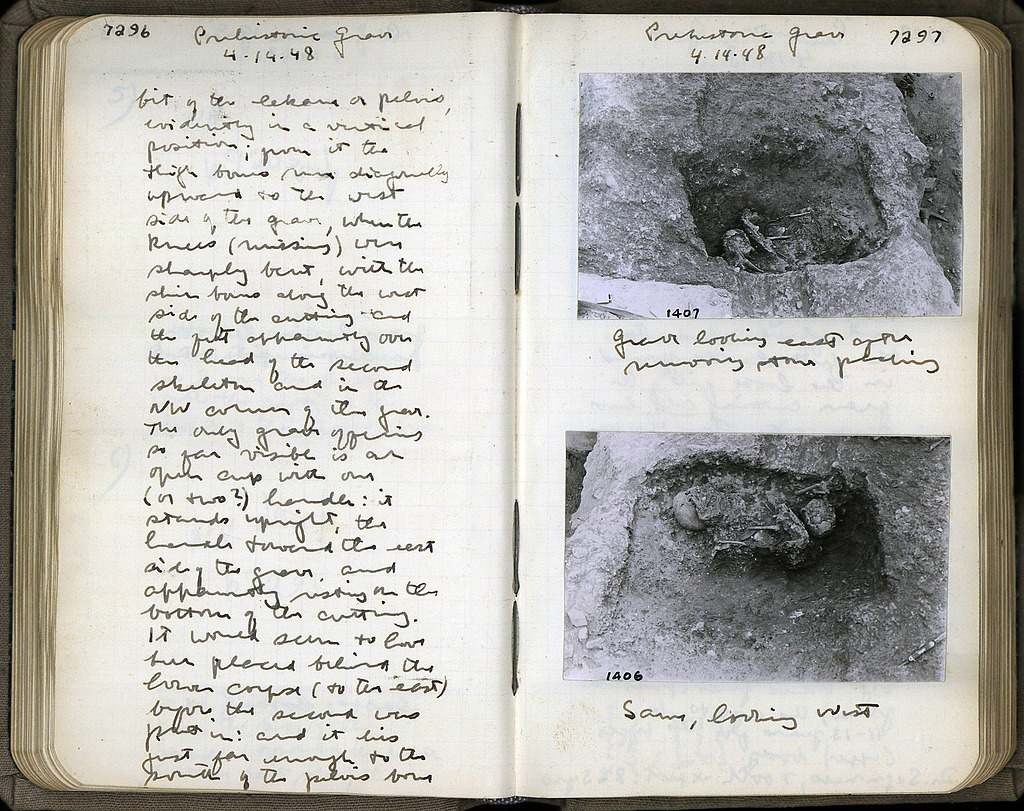 7296
Prehistoric Grave
4-14-48
bit of the sekane or pelvis,
evidently in a vertical
position; from it the
thigh bones run diagonally
upward to the west
side of the grave, when the
knees (missing) were
sharply bent, with the
shin bones along the west
side of the cutting and
the feet apparently over
the head of the second
skeleton and in the
NW corner of the grave.
The only grave offering
so far visible is an
open cup with one
(or two?) handles: it
stands upright, the
handle toward the east
side of the grave, and
apparently resting on the
bottom of the cutting.
It would seem to have
been placed behind the
lower corpse (to the east)
before the second was
put in: and it lies
just far enough to the
south of the pelvis bone
Prehistoric Grave
7297
4.14.48
1407
Grave looking east after
removing stone packing
1406
Same, looking west